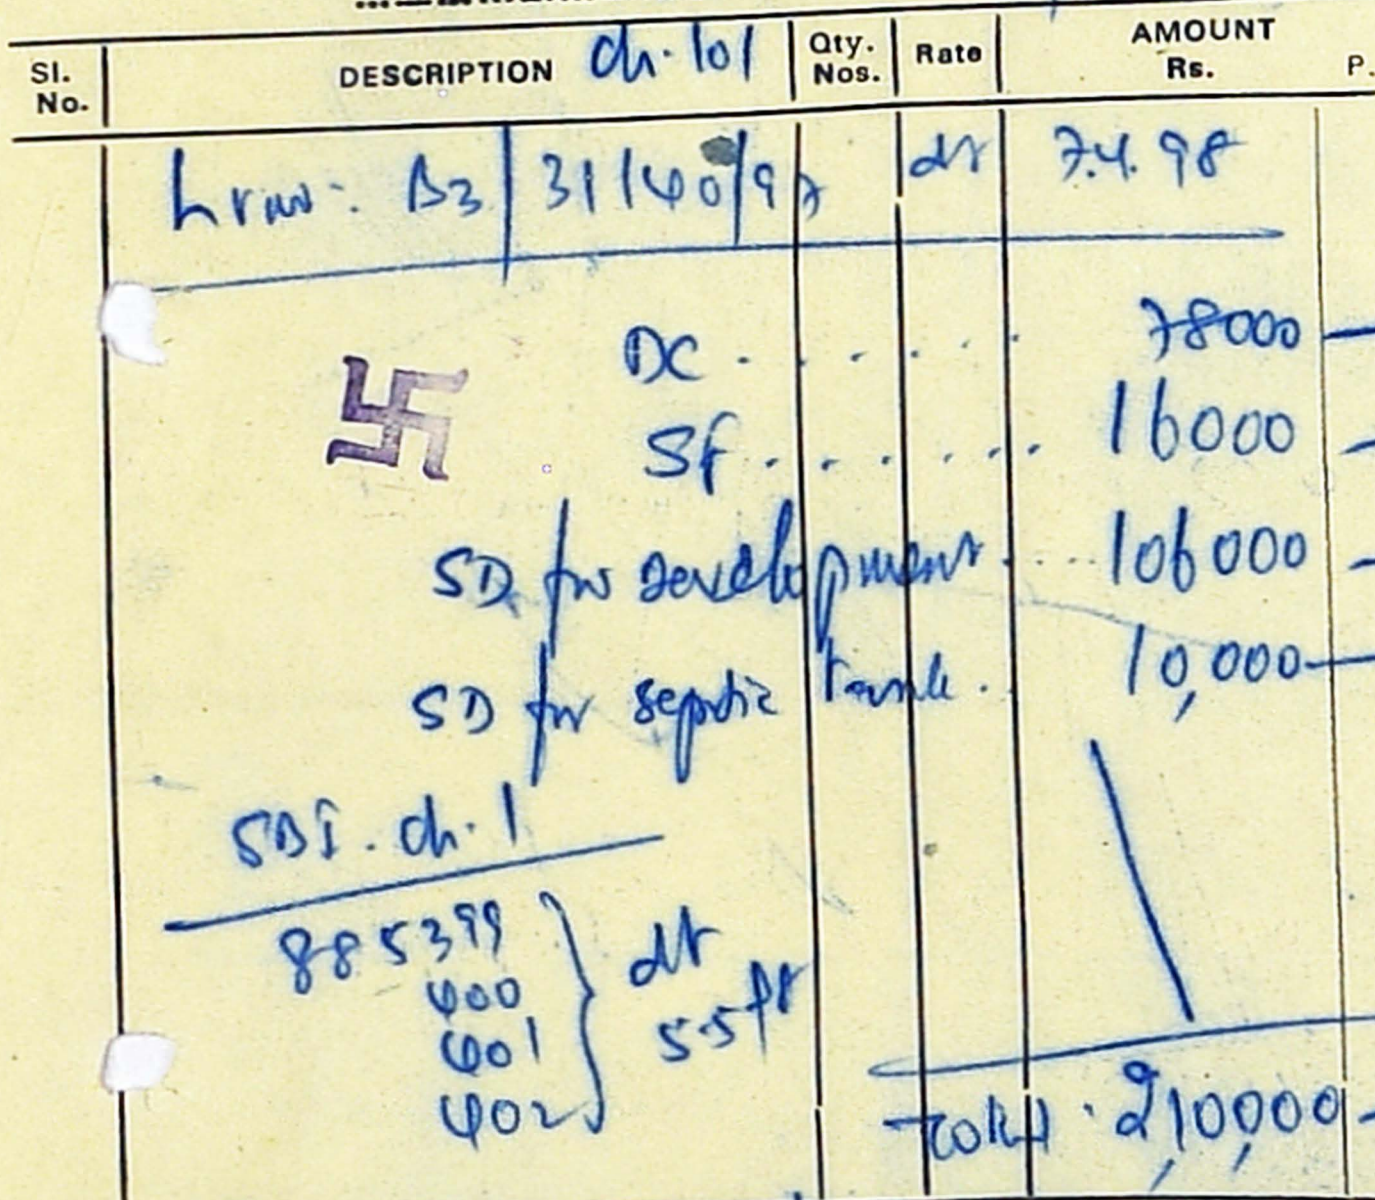 Sl. No. DESCRIPTION Ch. 101 Qty. Nos. Rate AMOUNT Rs. P.
B3/31140/97 dt 7.4.98
DC . . . . . . 78000 —
SF . . . . . . 16000 —
SD for Development . . . . 106000 —
SD for septic tank . . 10,000 —
SBI . Ch. 1
885399
400
401
402
dt
5.5.98
Total . 2,10,000 —